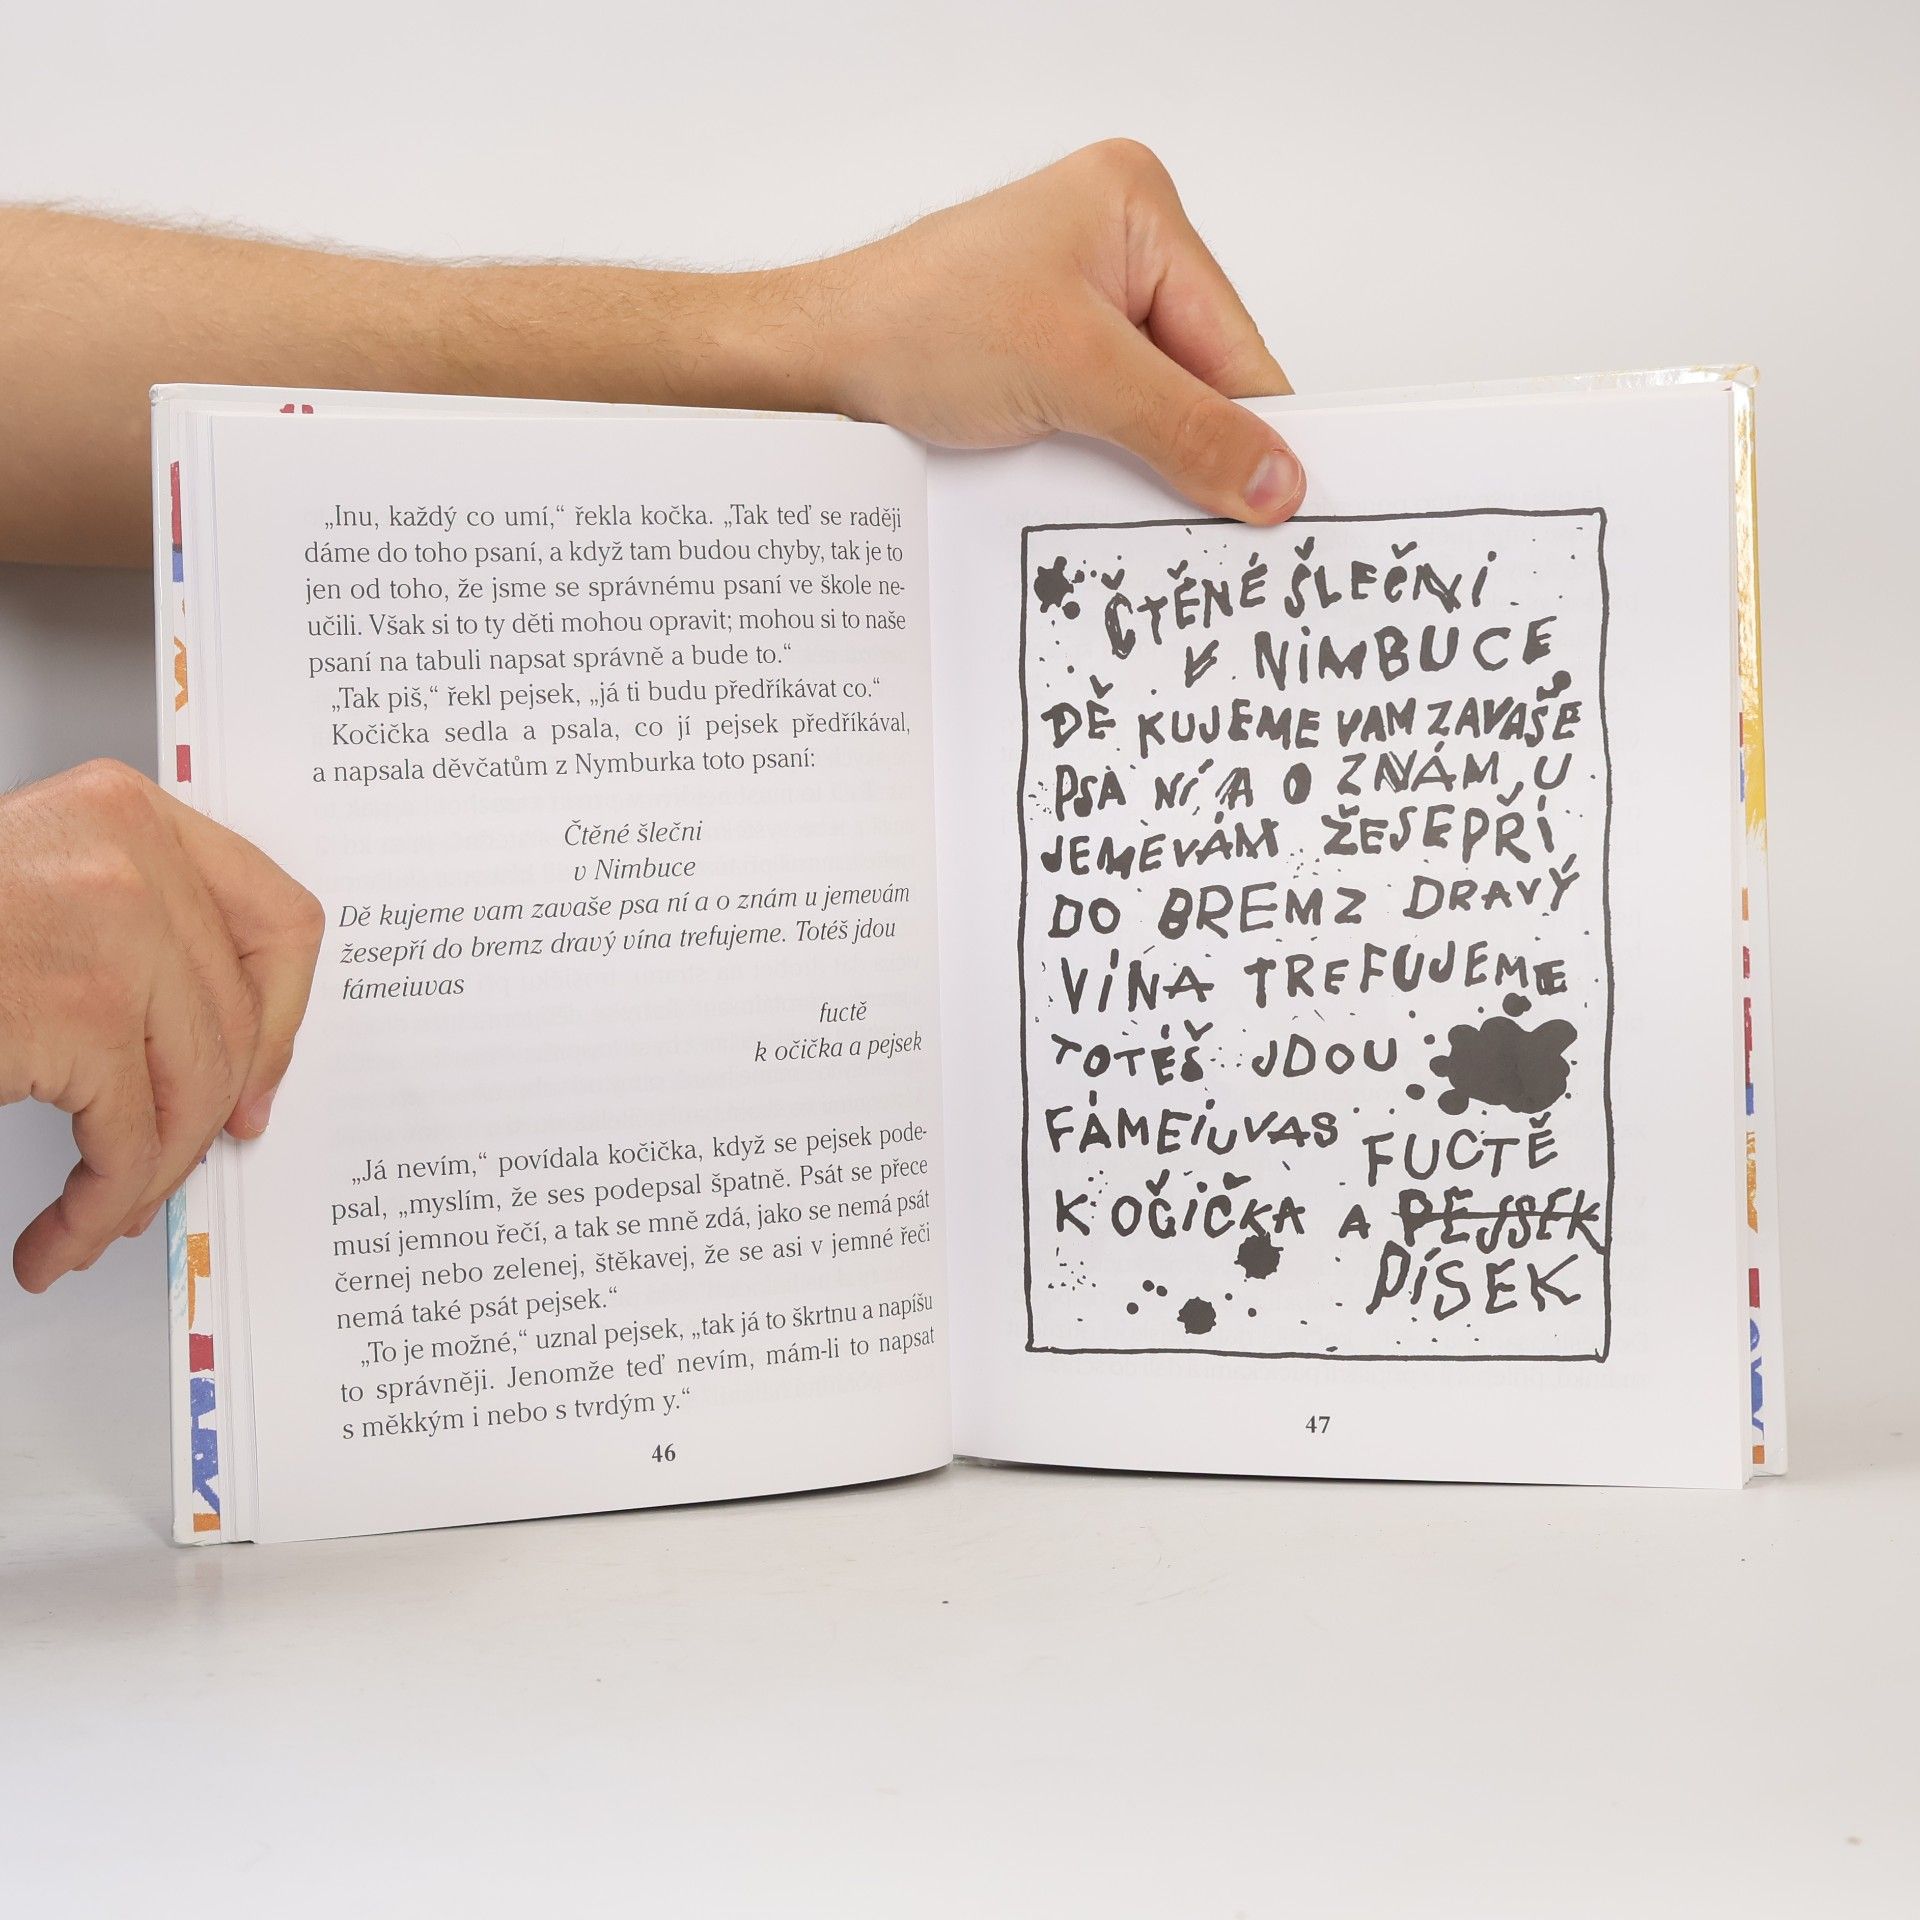 „Inu, každý co umí,“ řekla kočka. „Tak teď se raději
dáme do toho psaní, a když tam budou chyby, tak je to
jen od toho, že jsme se správnému psaní ve škole ne-
učili. Však si to ty děti mohou opravit; mohou si to naše
psaní na tabuli napsat správně a bude to.“
„Tak piš,“ řekl pejsek, „já ti budu předříkávat co.“
Kočička sedla a psala, co jí pejsek předříkával,
a napsala děvčatům z Nymburka toto psaní:
Čtěné šlečni
v Nimbuce
Dě kujeme vam zavaše psa ní a o znám u jemevám
žesepří do bremz dravý vína trefujeme. Totéš jdou
fámeiuvas
fuctě
k očička a pejsek
„Já nevím,“ povídala kočička, když se pejsek pode-
psal, „myslím, že ses podepsal špatně. Psát se přece
musí jemnou řečí, a tak se mně zdá, jako se nemá psát
černej nebo zelenej, štěkavej, že se asi v jemné řeči
nemá také psát pejsek.“
„To je možné,“ uznal pejsek, „tak já to škrtnu a napíšu
to správněji. Jenomže teď nevím, mám-li to napsat
s měkkým i nebo s tvrdým y.“
46
ČTĚNÉ ŠLEČNI
V NIMBUCE
DĚ KUJEME VAM ZAVAŠE
PSA NÍ A O ZNÁM U
JEMEVÁM ŽESEPŘÍ
DO BREMZ DRAVÝ
VÍNA TREFUJEME
TOTÉŠ JDOU
FÁMEIUVAS FUCTĚ
K OČIČKA A PEJSEK
PÍSEK
47